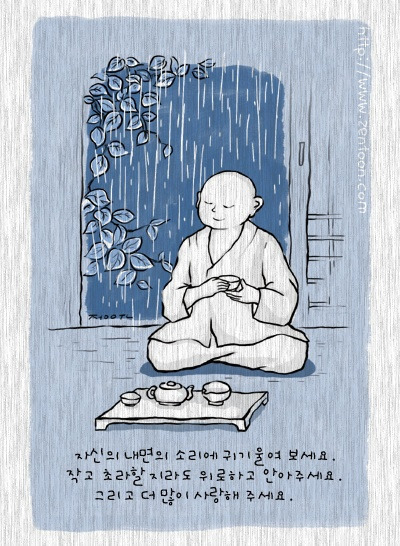 http://www.zentoon.com
자신의 내면의 소리에 귀기울여 보세요.
작고 초라할 지라도 위로하고 안아주세요.
그리고 더 많이 사랑해 주세요.